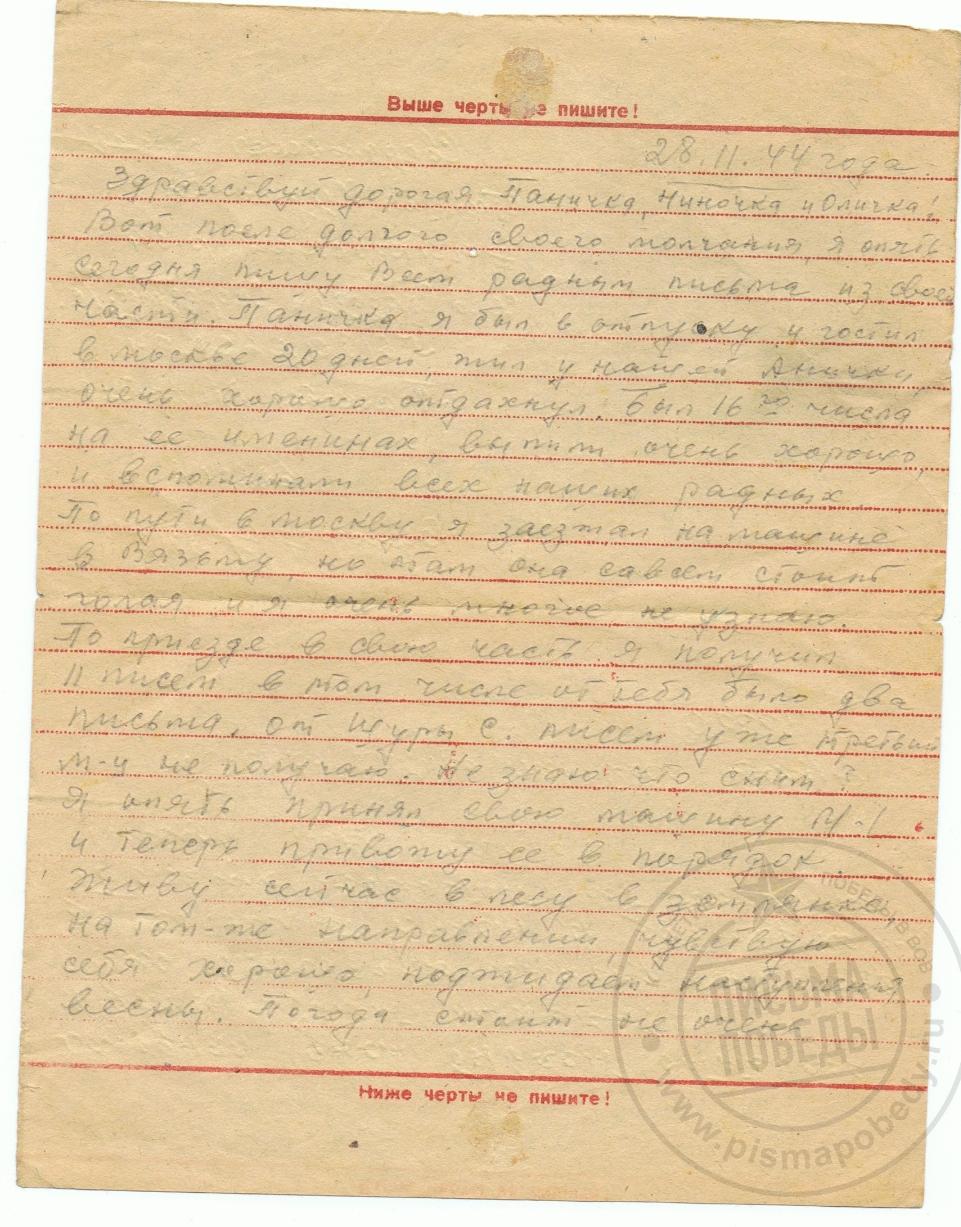 Выше черты не пишите!
28.11.44 года.
Здравствуй дорогая Паничка, Ниночка и Оличка!
Вот после долгого своего молчания, я опять
сегодня пишу Всем радным письма из своей
части. Паничка я был в отпуску и гостил
в москве 20 дней, жил у нашей Анички,
очень хорошо отдахнул. Был 16го числа
на ее именинах, выпили очень хорошо,
и вспоминали всех наших радных
По пути в москву я заезжал на машине
в Вязьму, но там она савсем стоит
голая и я очень многое не узнаю.
По приезде в свою часть я получил
11 писем в том числе от тебя было два
письма, от Шуры С. писем уже третьий
м-ц не получаю. Не знаю что сним?
Я опять принял свою машину М-1
и теперь привожу ее в порядок.
Живу сейчас в лесу в землянке,
на том-же направлении чувствую
себя хорошо, поджидаем наступления
весны. Погода стоит не очень
Ниже черты не пишите!
ПИСЬМА
ПОБЕДЫ
www.pismapobedy.ru